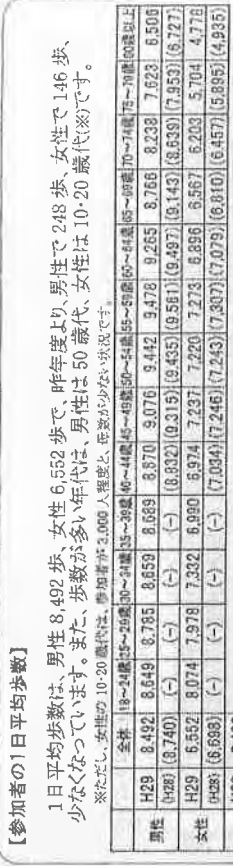 【参加者の1日平均歩数】
1日平均歩数は、男性8,492歩、女性6,552歩で、昨年度より、男性で248歩、女性で146歩、
少なくなっています。また、歩数が多い年代は、男性は50歳代、女性は10・20歳代(※)です。
※ただし、女性の10・20歳代は、参加者が3,000人程度と、母数が少ない状況です。
全体 18~24歳 25~29歳 30~34歳 35~39歳 40~44歳 45~49歳 50~54歳 55~59歳 60~64歳 65~69歳 70~74歳 75~79歳 80歳以上
男性 H29 8,492 8,649 8,785 8,659 8,689 8,870 9,076 9,442 9,478 9,265 8,766 8,238 7,623 6,506
(H28) (8,740) (-) (-) (-) (-) (8,832) (9,315) (9,435) (9,561) (9,497) (9,143) (8,639) (7,953) (6,727)
女性 H29 6,552 8,074 7,978 7,332 6,990 6,974 7,237 7,220 7,273 6,896 6,567 6,203 5,704 4,778
(H28) (6,698) (-) (-) (-) (-) (7,034) (7,246) (7,243) (7,307) (7,079) (6,810) (6,457) (5,895) (4,935)